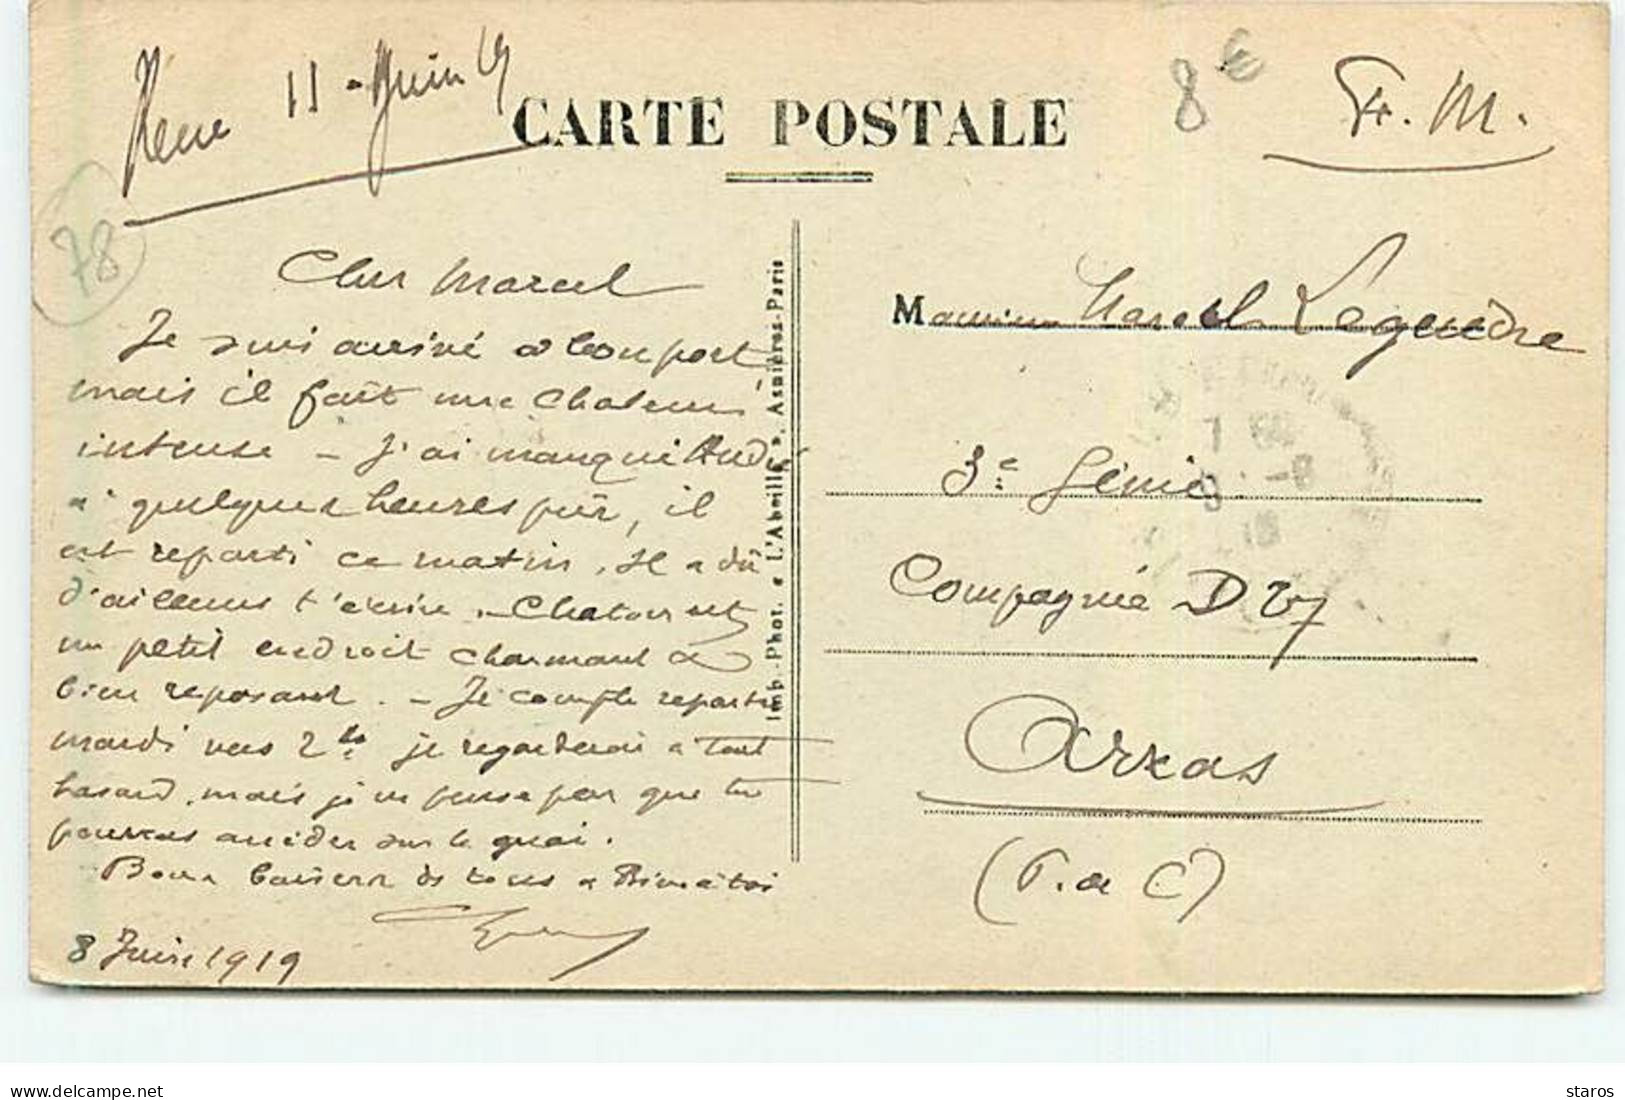 Recue 11 - Juin 19
CARTE POSTALE
8€
F. M.
78
Cher Marcel
Je suis arrivé à bon port
mais il fait une chaleur
intense - J'ai manqué André
à quelques heures près, il
est reparti ce matin. Il a dû
d'ailleurs t'écrire. - Chatou est
un petit endroit charmant &
bien reposant. - Je compte repartir
mardi vers 2 hs je regarderai à tout
hasard, mais je ne pense pas que tu
pourras accéder sur le quai.
Bons baisers de tous & Bien à toi
8 Juin 1919
Imp. Phot. « L'Abeille », Asnières-Paris
Monsieur Marcel Leguèdre
3e Génie
Compagnie D 27
Arras
(P. de C)
delcampe.net
staros